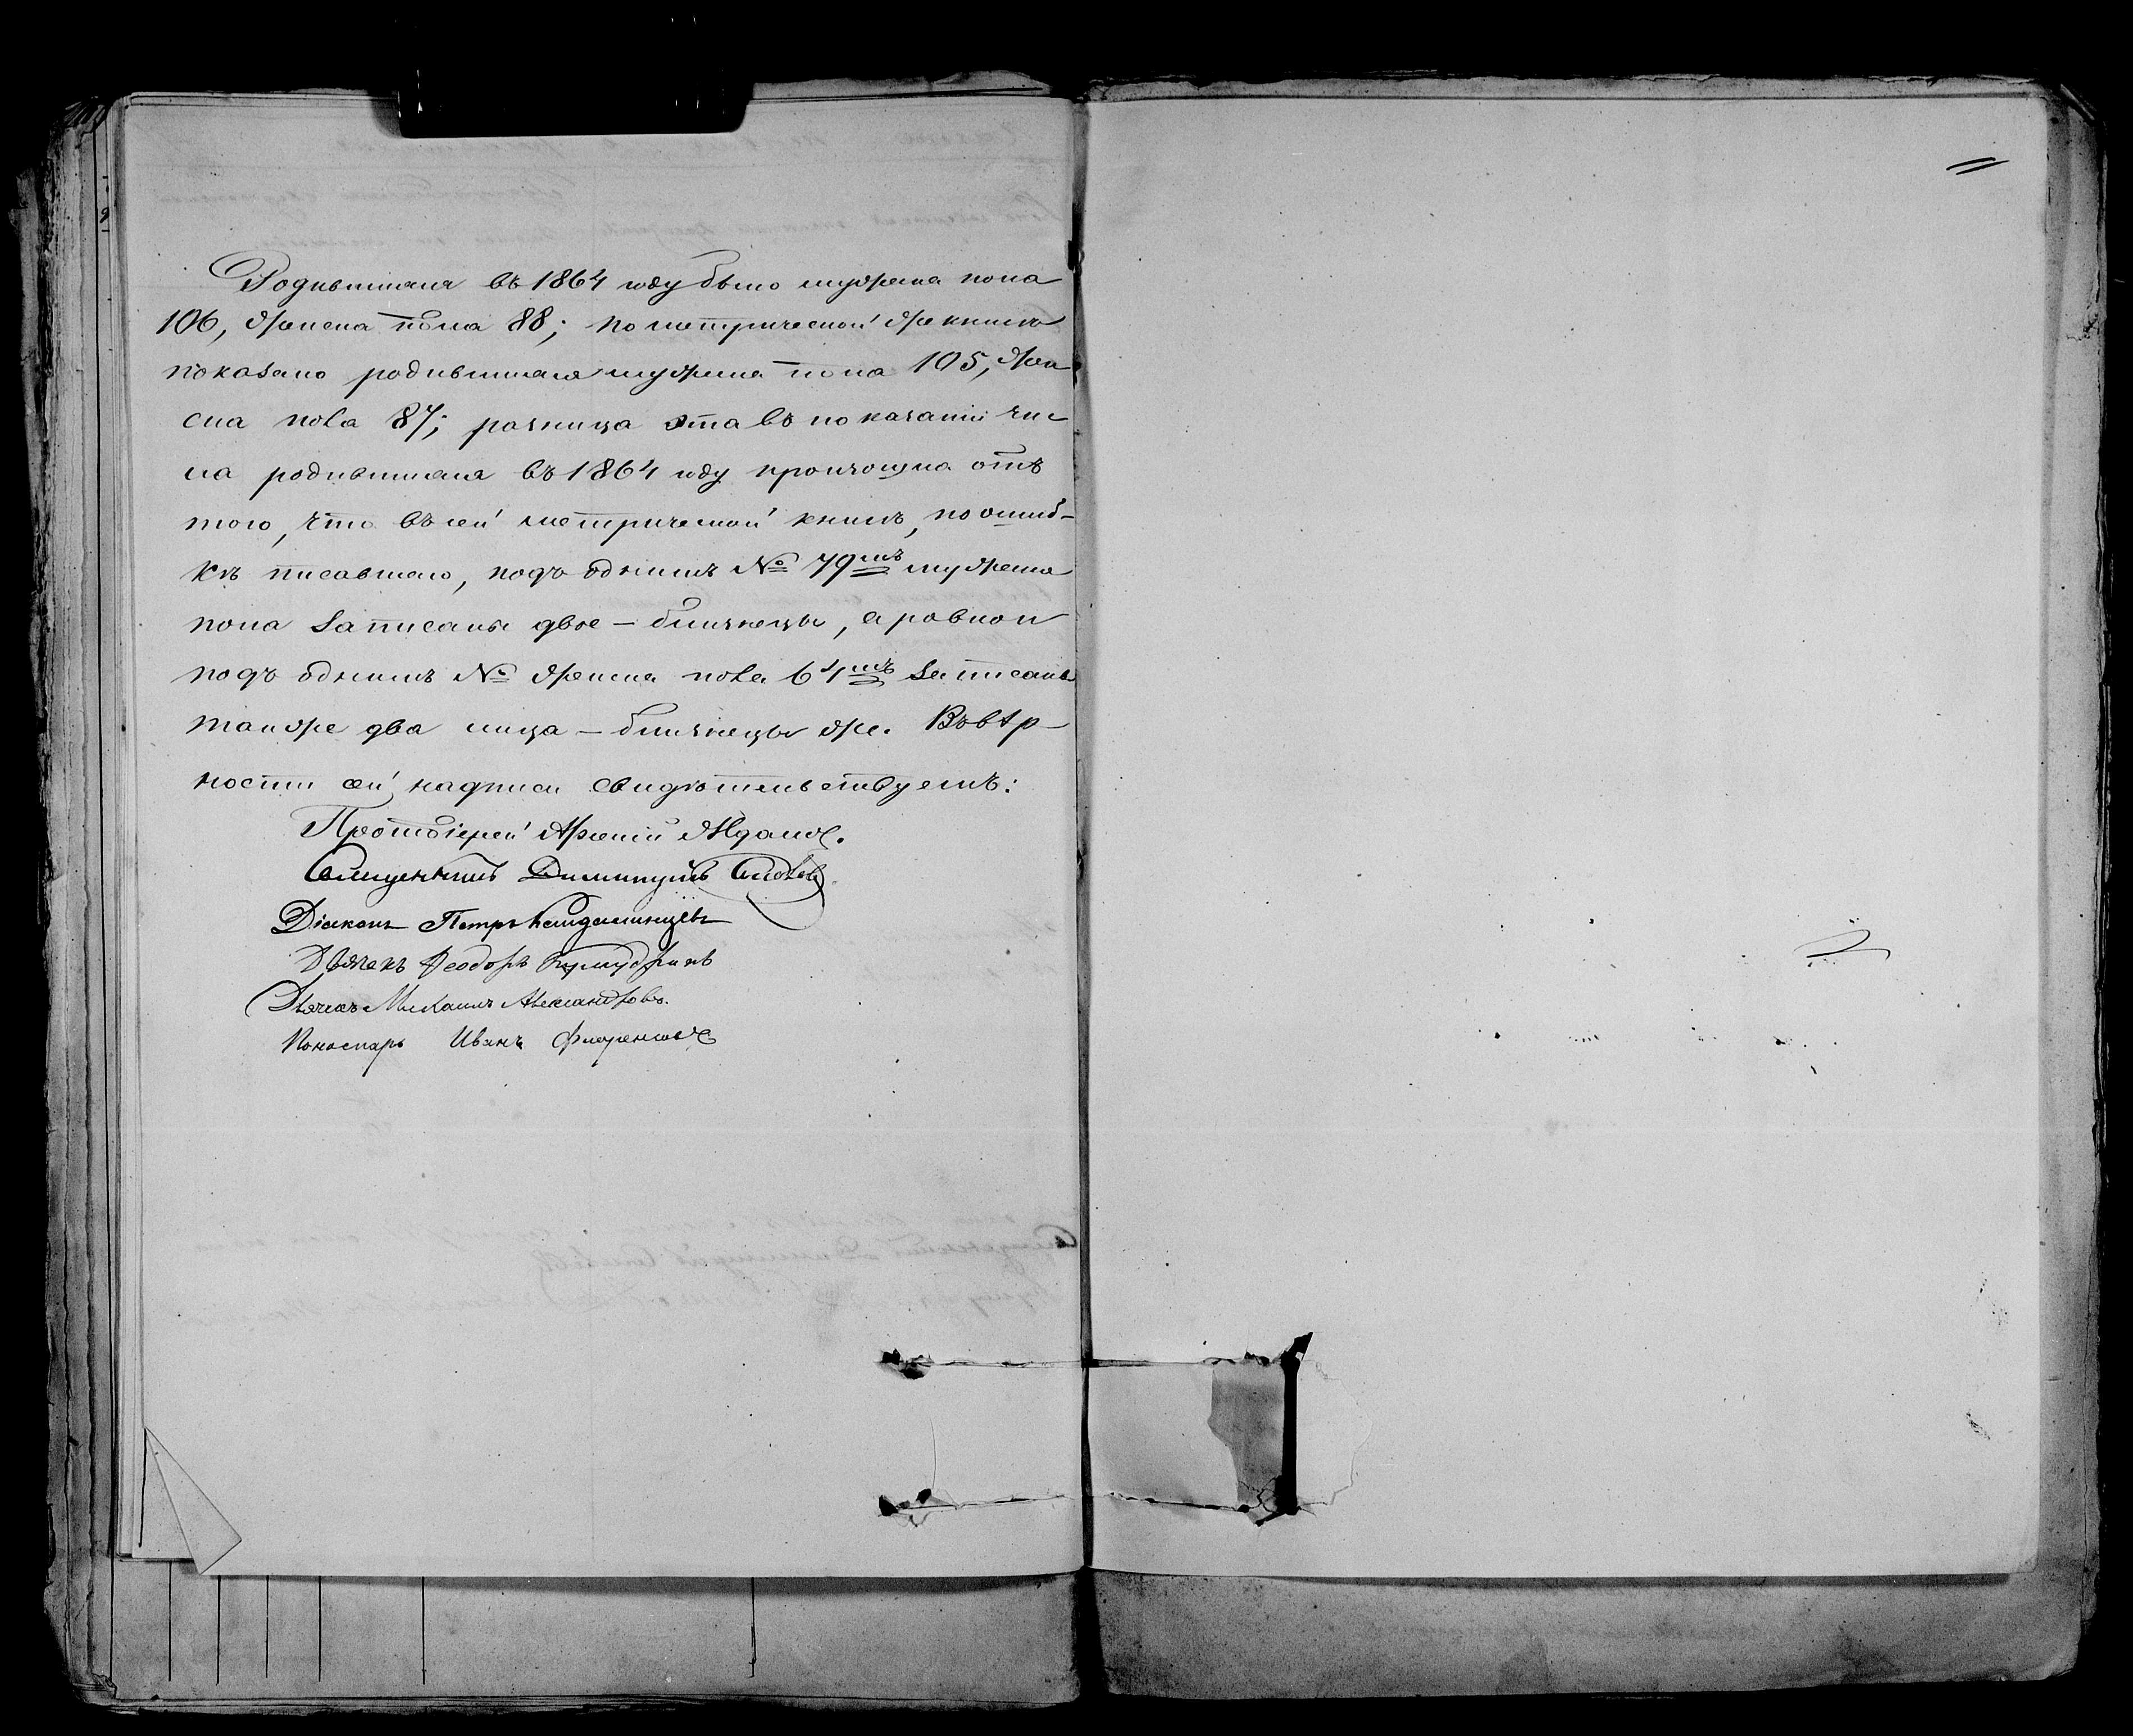 Родившихся въ 1864 году было мужеска пола
106, женска пола 88; по метрической же книгѣ
показано родившихся мужеска пола 105, жен
ска пола 87; разница эта въ показанiи чис
ла родившихся въ 1864 году произошла отъ
того, что въ сей метрической книгѣ, по ошиб-
кѣ писавшаго, подъ однимъ № 79мъ мужеска
пола записаны двое – близнецы, а равно и
подъ однимъ № женска пола 64мъ записаны
также два лица – близнецы же. Въ вѣр-
ности сей надписи свидѣтельствуемъ:
Протоiерей Арсенiй
Священникъ Димитрiй
Дiаконъ Петръ
Дьячекъ Феодоръ
Дьячекъ Михаилъ Александровъ.
Пономарь Иванъ